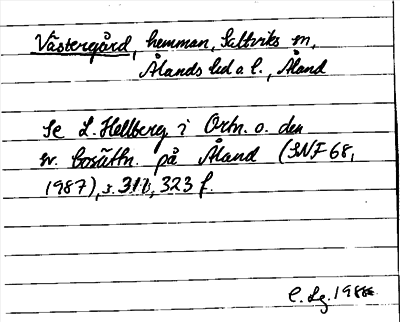 Västergård, hemman, Saltviks sn,
Ålands hd o l., Åland
Se L. Hellberg i Ortn. o. den
sv. bosättn. på Åland (SNF 68,
1987), s. 311, 323 f.
C. Lg. 1988